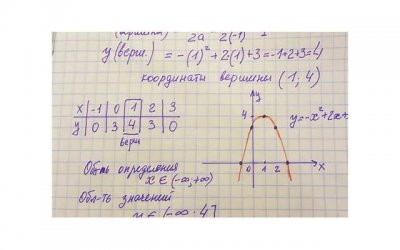 2a 2(-1)
y(верш.) = -(1)² + 2(1)+3 = -1+2+3=4
координаты вершины (1; 4)
x -1 0 1 2 3
y 0 3 4 3 0
верш
y
4
y=-x²+2x+
0 1 2 x
Обл-ть определения
x ∈ (-∞; +∞)
Обл-ть значений
y ∈ (-∞; 4]